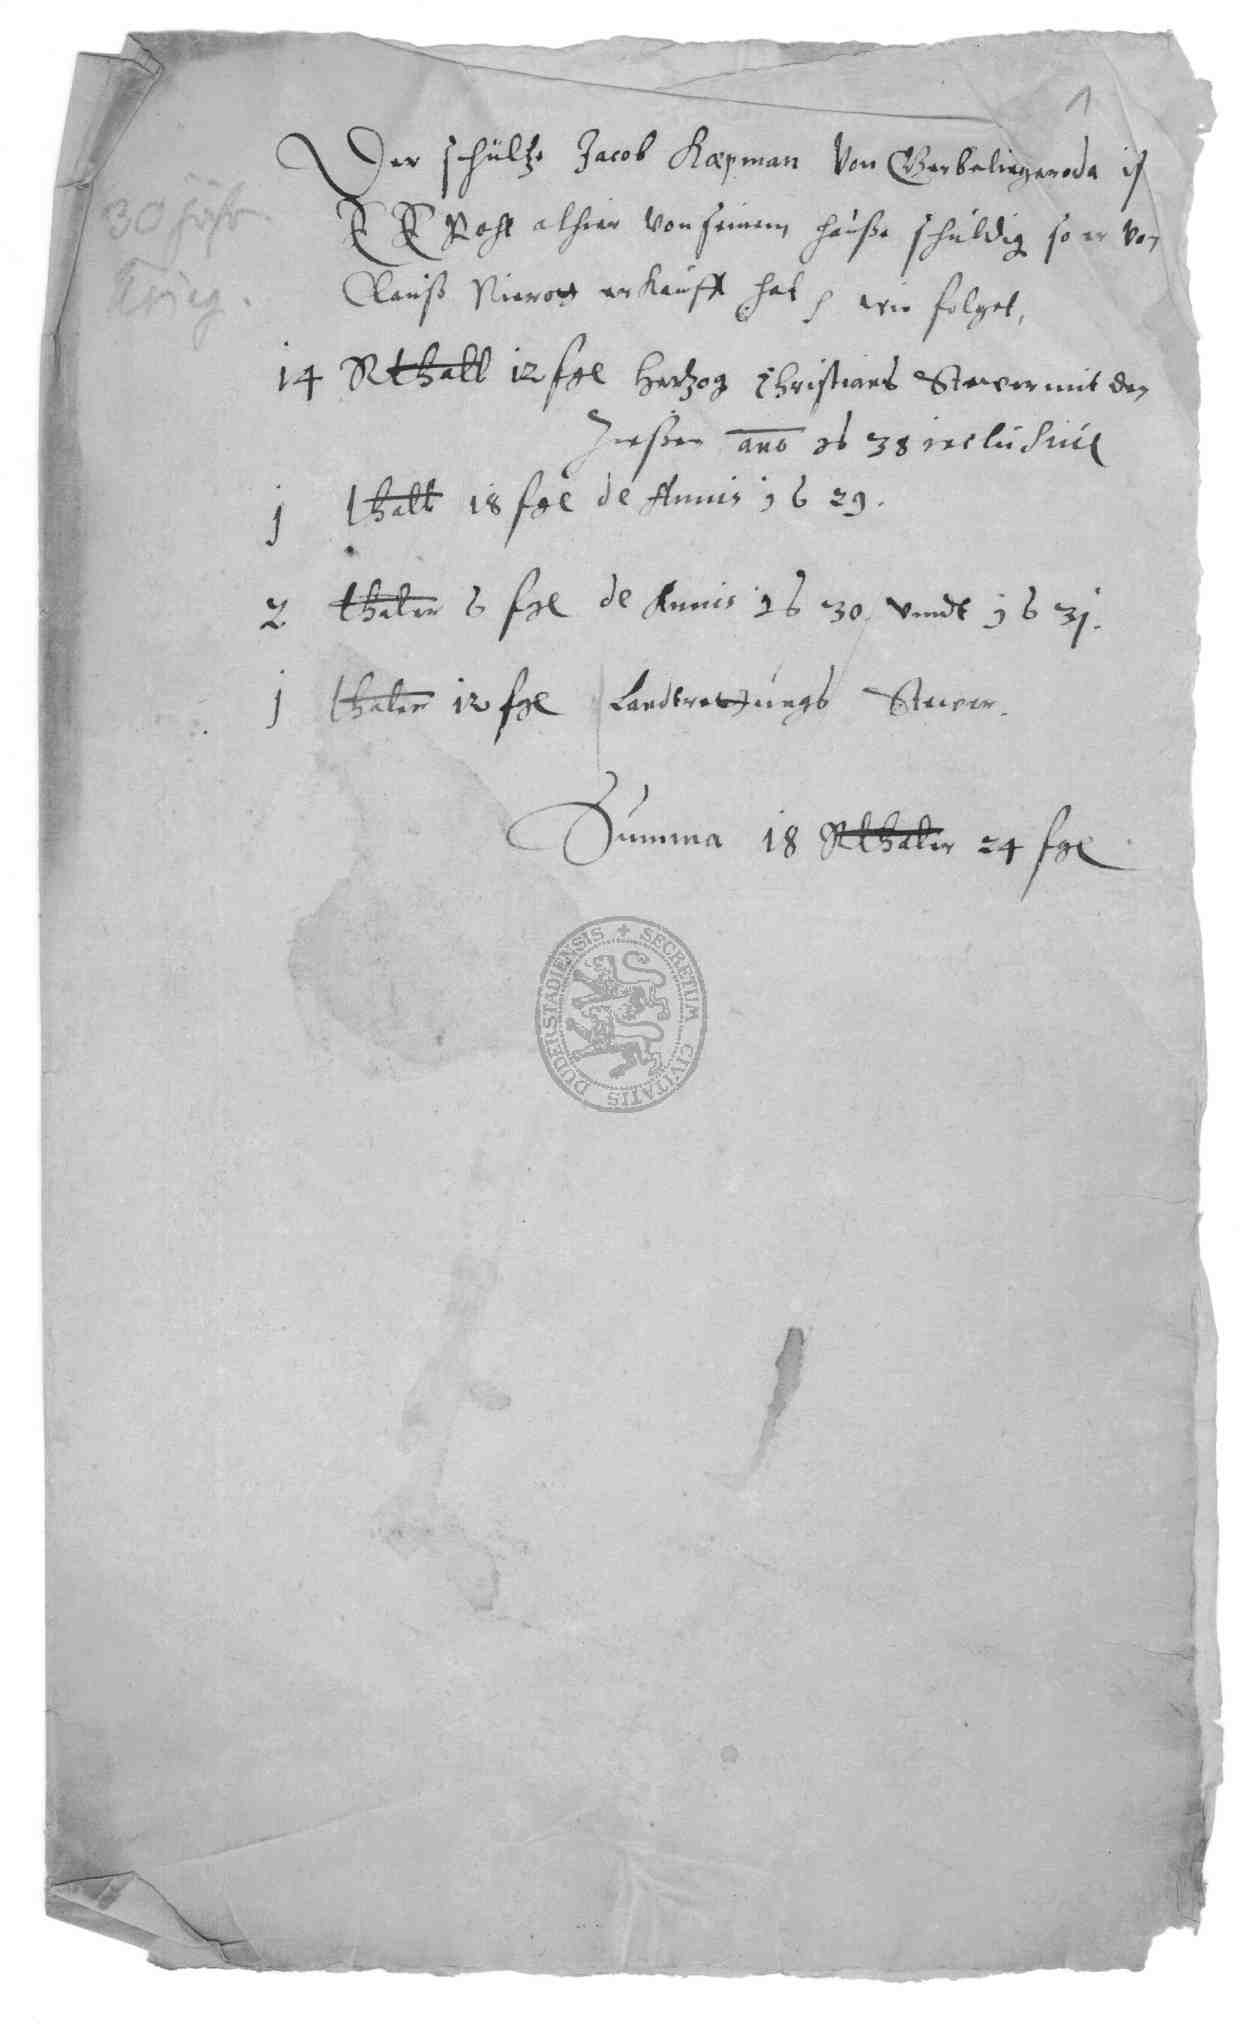 1
30 jähr.
Krieg.
Der schültze Jacob Kopman von Gerbeliegeroda ist
E E Raht alhier von seinem hauße schuldig so er von
Clauß erkaufft hat, wie folget,
14 Rthall 12 sgl Hertzog Christians Stewer mit den
Zinßen anno 38 inclusive
j thall 18 sgl de Annis 1629.
2 thaler 6 sgl de Annis 1630, vnndt 163j.
j thaler 12 sgl Landtrettungs Stewer.
Summa 18 Rthaler 24 sgl
SECRETUM CIVITATIS DUDERSTADIENSIS